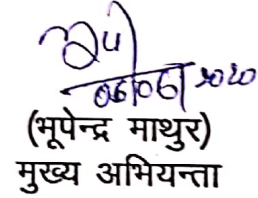 06/06/2020
(भूपेन्द्र माथुर)
मुख्य अभियन्ता